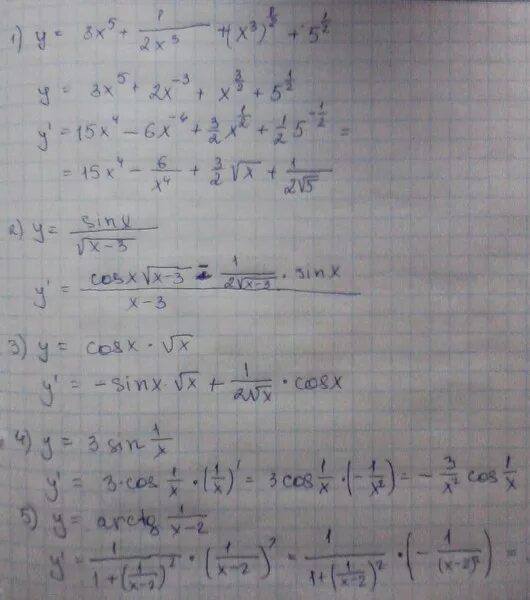 1) y = 3x⁵ + 1/(2x³) + (x³)^(1/2) + 5^(1/2)
y = 3x⁵ + 2x⁻³ + x^(3/2) + 5^(1/2)
y' = 15x⁴ − 6x⁻⁴ + 3/2 x^(1/2) + 1/2 5^(−1/2) =
= 15x⁴ − 6/x⁴ + 3/2 √x + 1/(2√5)
2) y = sinx/√(x−3)
y' = (cosx √(x−3) − 1/(2√(x−3)) · sinx)/(x−3)
3) y = cosx · √x
y' = −sinx · √x + 1/(2√x) · cosx
4) y = 3 sin 1/x
y' = 3 · cos 1/x · (1/x)' = 3 cos 1/x · (−1/x²) = − 3/x² cos 1/x
5) y = arctg 1/(x−2)
y' = 1/(1+(1/(x−2))²) · (1/(x−2))² = 1/(1+(1/(x−2))²) · (−1/(x−2)²) =